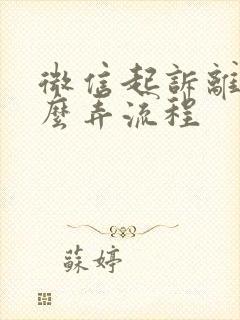 微信起訴離
麼弄流程
蘇婷